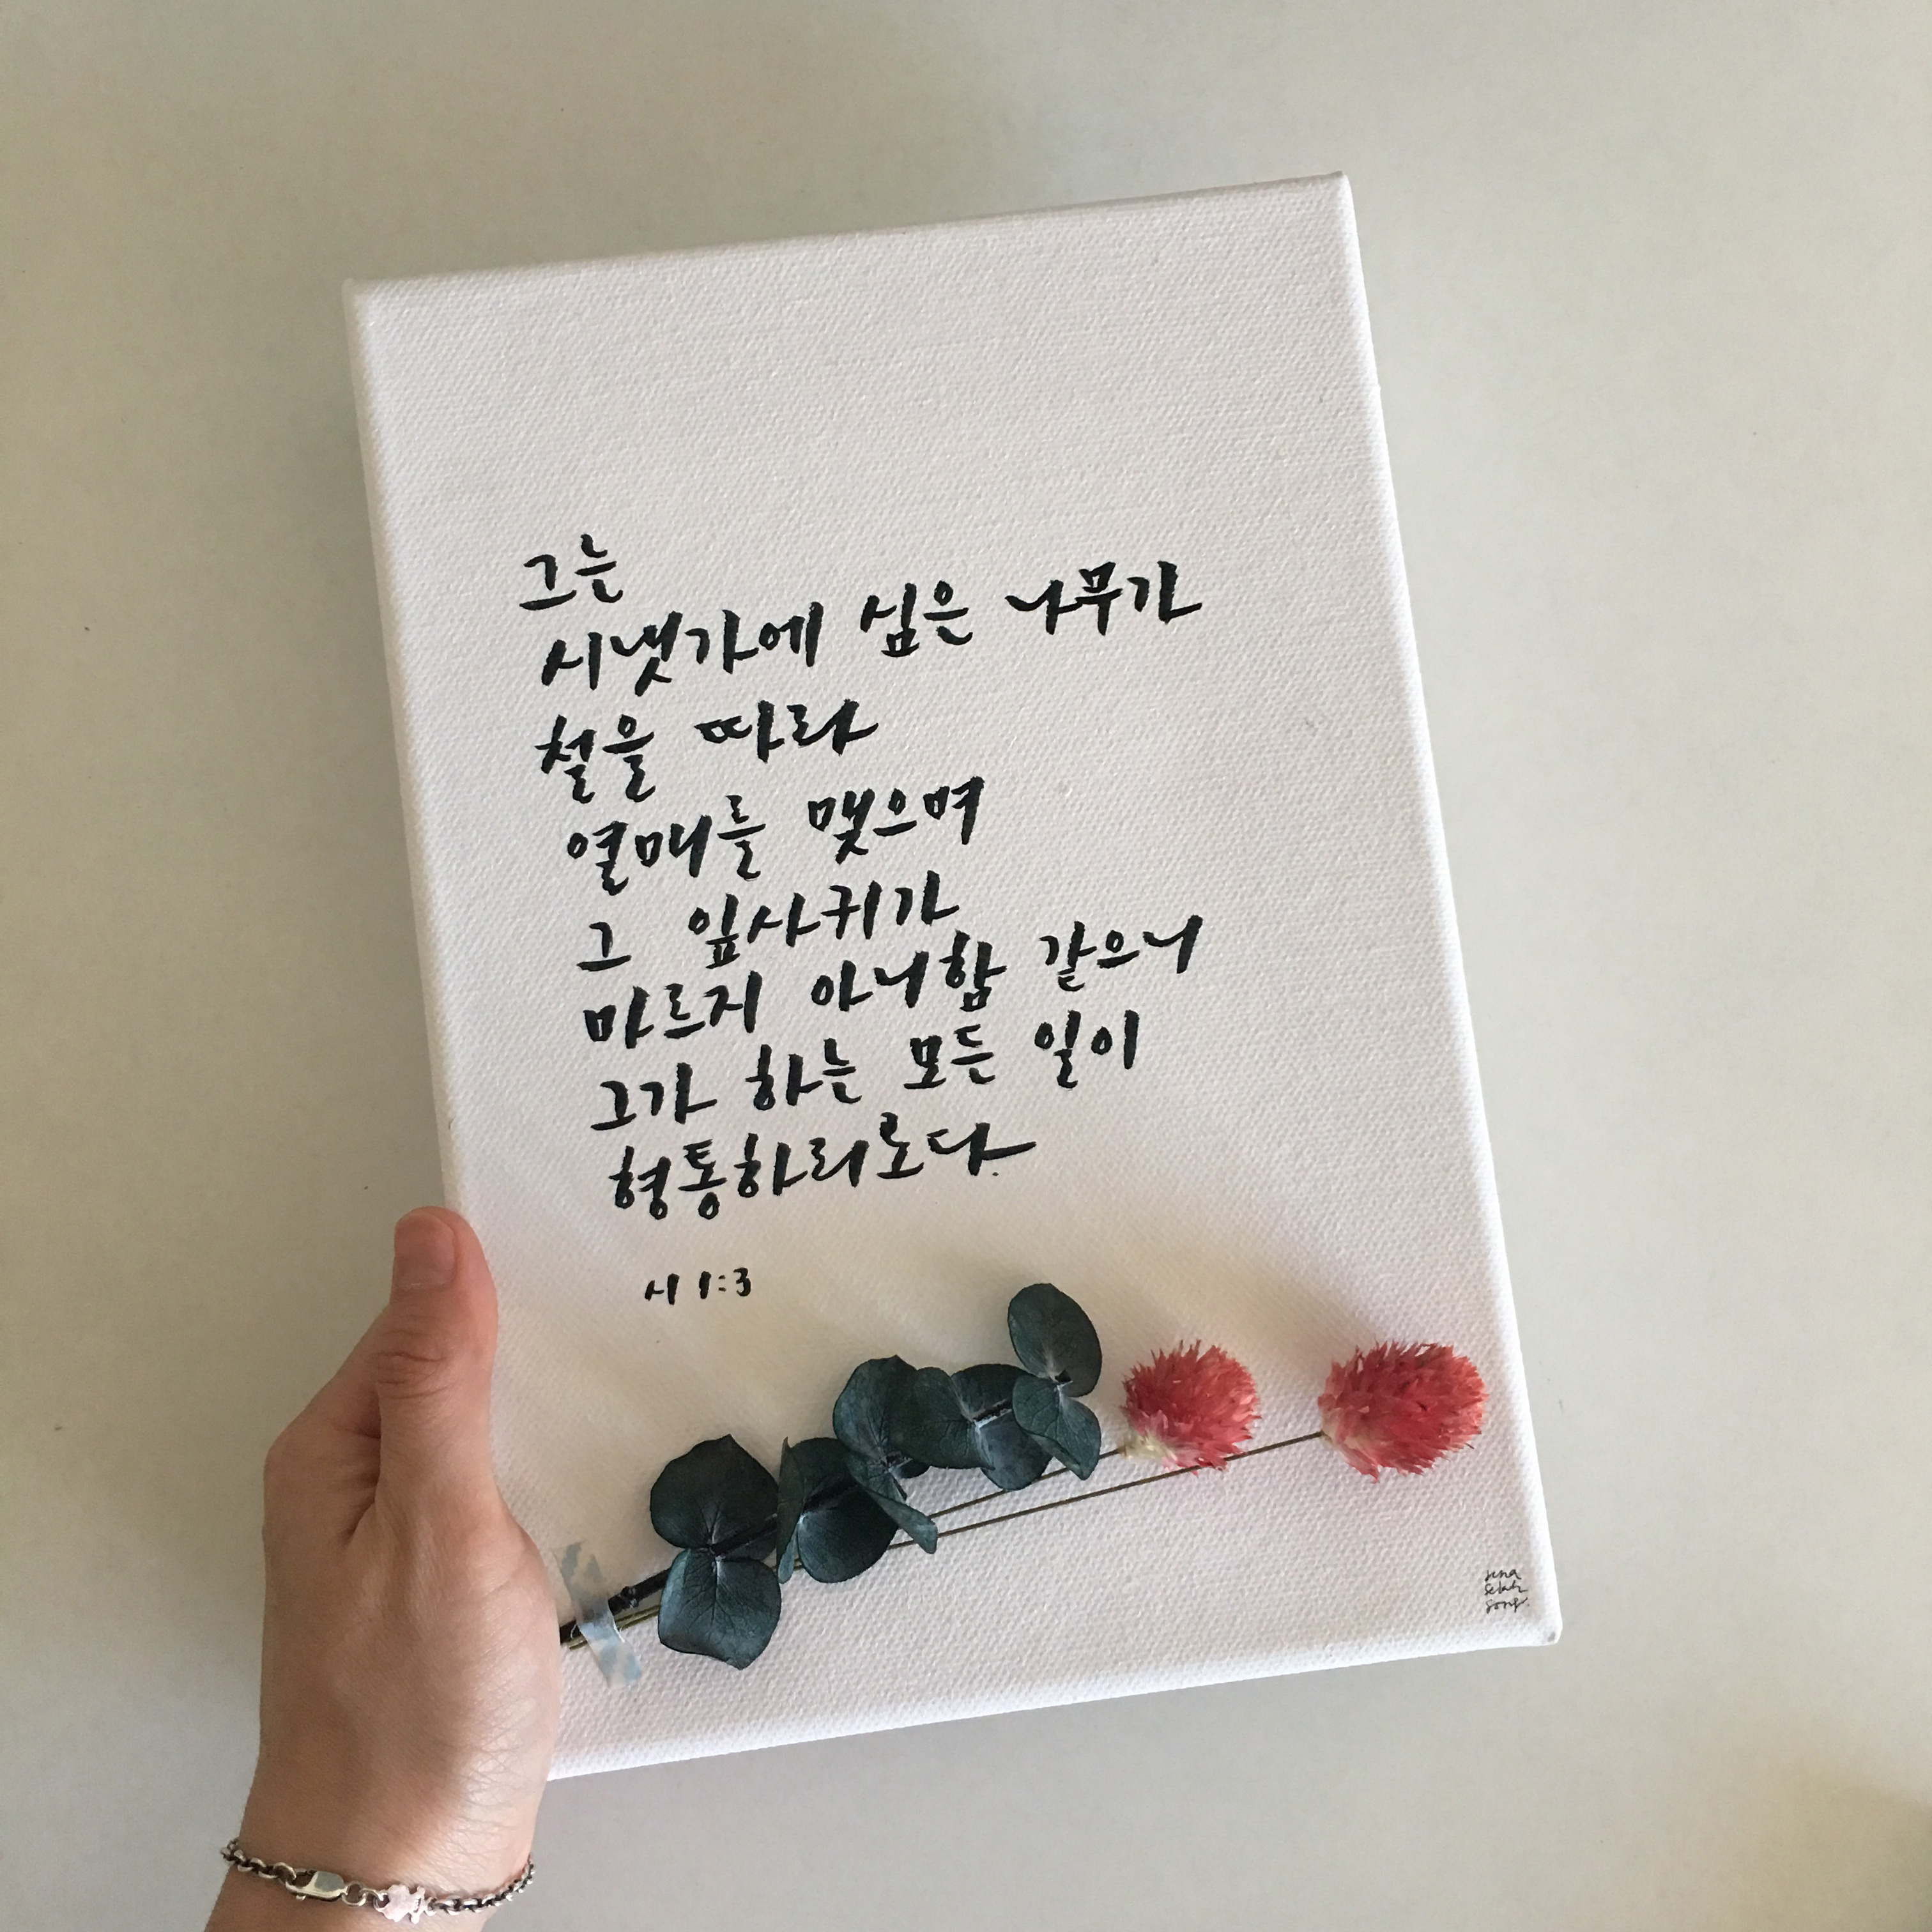 그는
시냇가에 심은 나무가
철을 따라
열매를 맺으며
그 잎사귀가
마르지 아니함 같으니
그가 하는 모든 일이
형통하리로다.
시 1:3
sena
selah
song.